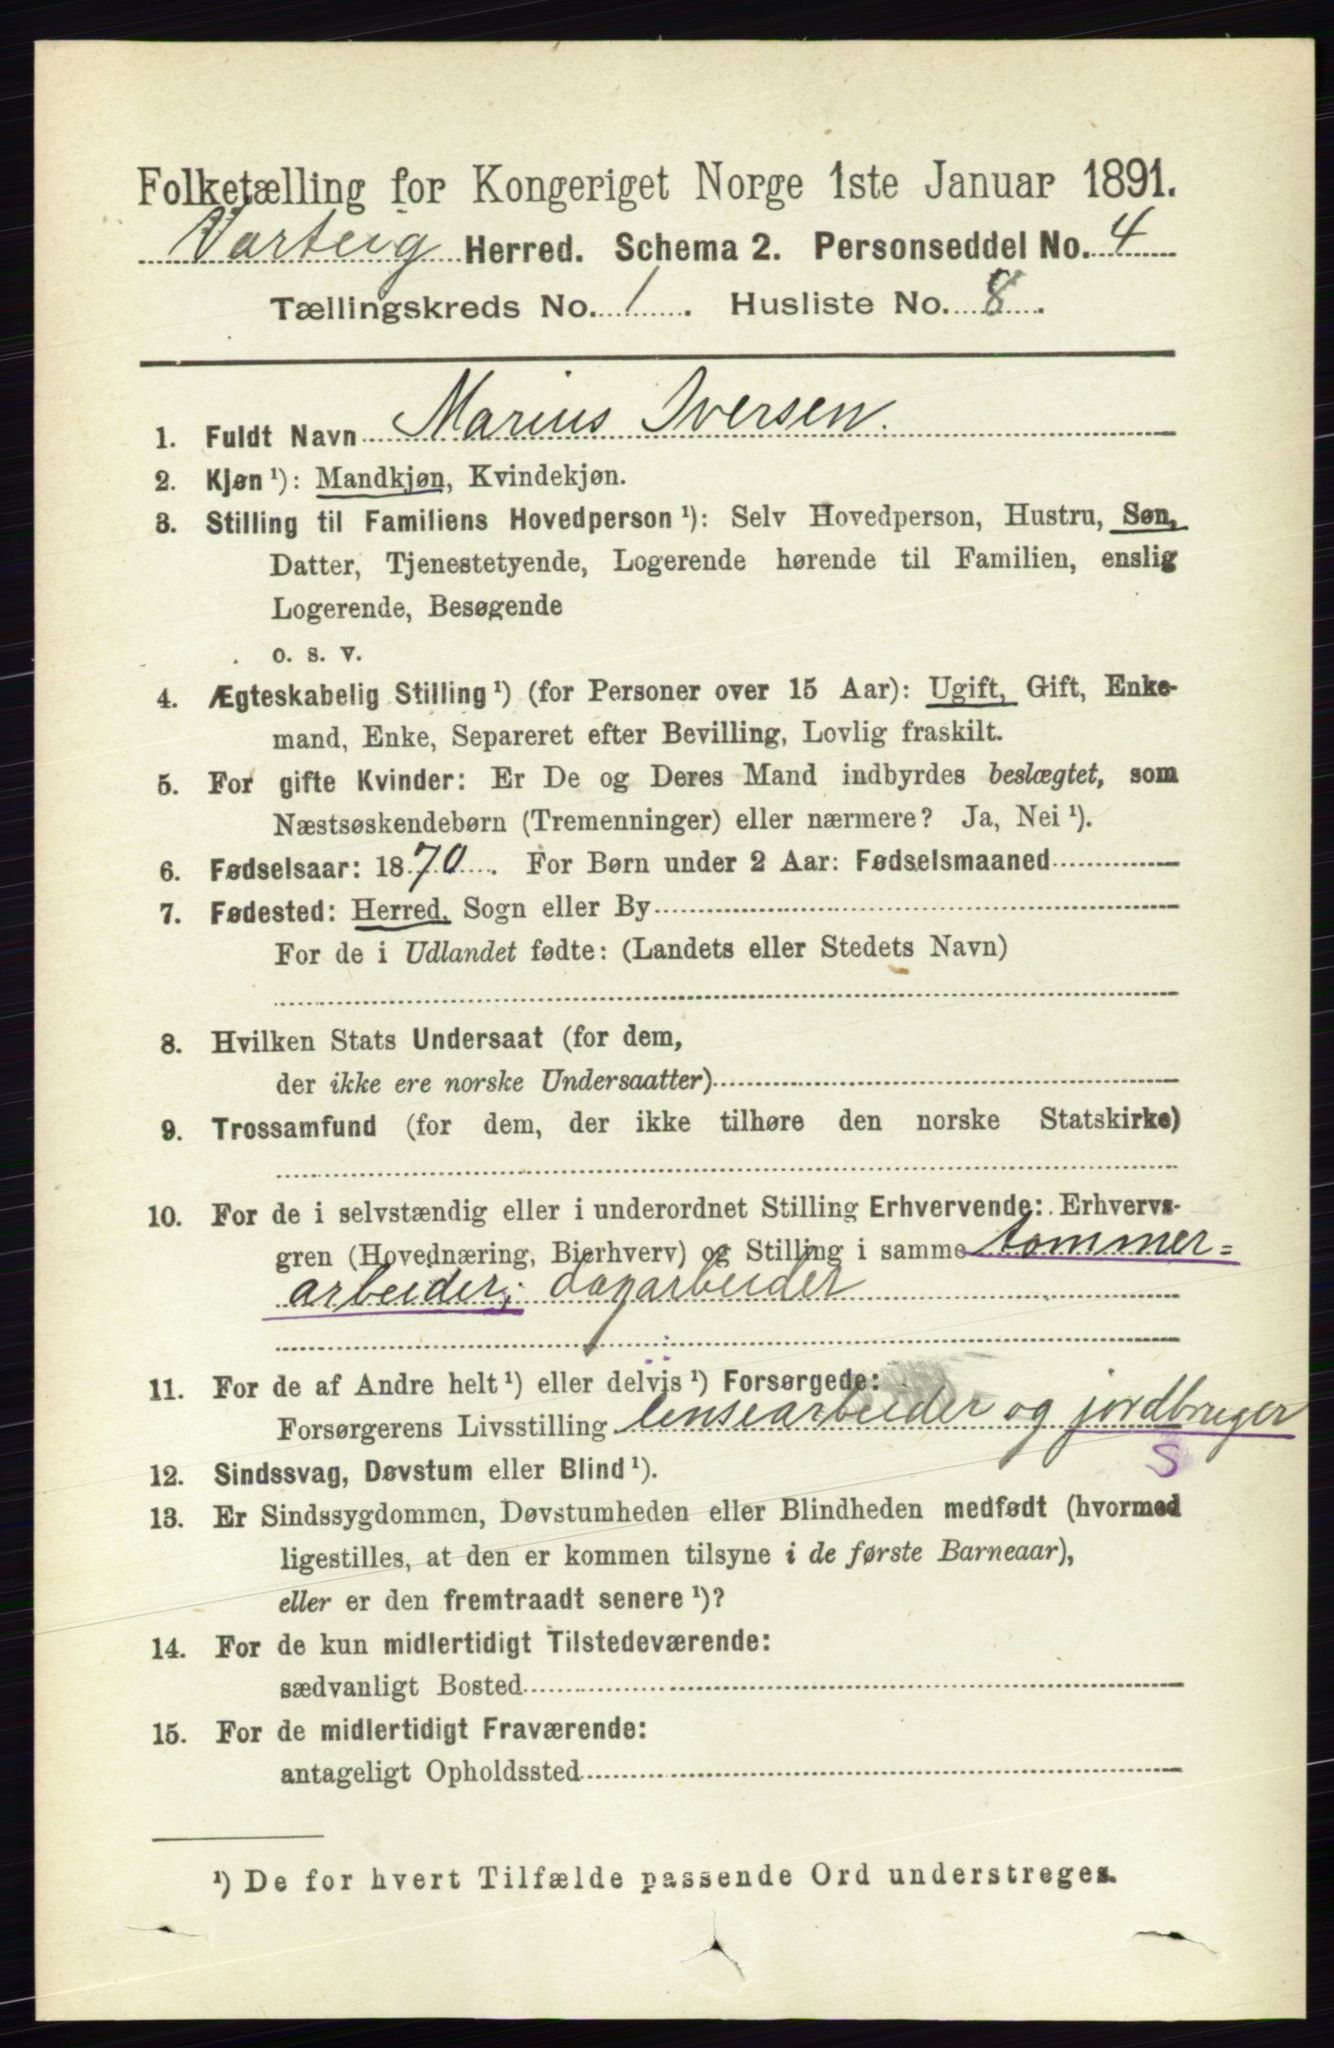 Folketælling for Kongeriget Norge 1ste Januar 1891.
Varteig Herred. Schema 2. Personseddel No. 4
Tællingskreds No. 1. Husliste No. 8.
1. Fuldt Navn Marius Iversen.
2. Kjøn ¹): Mandkjøn, Kvindekjøn.
3. Stilling til Familiens Hovedperson ¹): Selv Hovedperson, Hustru, Søn,
Datter, Tjenestetyende, Logerende hørende til Familien, enslig
Logerende, Besøgende
o. s. v.
4. Ægteskabelig Stilling ¹) (for Personer over 15 Aar): Ugift, Gift, Enke-
mand, Enke, Separeret efter Bevilling, Lovlig fraskilt.
5. For gifte Kvinder: Er De og Deres Mand indbyrdes beslægtet, som
Næstsøskendebørn (Tremenninger) eller nærmere? Ja, Nei ¹).
6. Fødselsaar: 1870. For Børn under 2 Aar: Fødselsmaaned
7. Fødested: Herred, Sogn eller By
For de i Udlandet fødte: (Landets eller Stedets Navn)
8. Hvilken Stats Undersaat (for dem,
der ikke ere norske Undersaatter)
9. Trossamfund (for dem, der ikke tilhøre den norske Statskirke)
10. For de i selvstændig eller i underordnet Stilling Erhvervende: Erhvervs-
gren (Hovednæring, Bierhverv) og Stilling i samme tømmer=
arbeider; dagarbeider
11. For de af Andre helt ¹) eller delvis ¹) Forsørgede:
Forsørgerens Livsstilling lensearbeider og jordbruger
S
12. Sindssvag, Døvstum eller Blind ¹).
13. Er Sindssygdommen, Døvstumheden eller Blindheden medfødt (hvormed
ligestilles, at den er kommen tilsyne i de første Barneaar),
eller er den fremtraadt senere ¹)?
14. For de kun midlertidigt Tilstedeværende:
sædvanligt Bosted
15. For de midlertidigt Fraværende:
antageligt Opholdssted
¹) De for hvert Tilfælde passende Ord understreges.